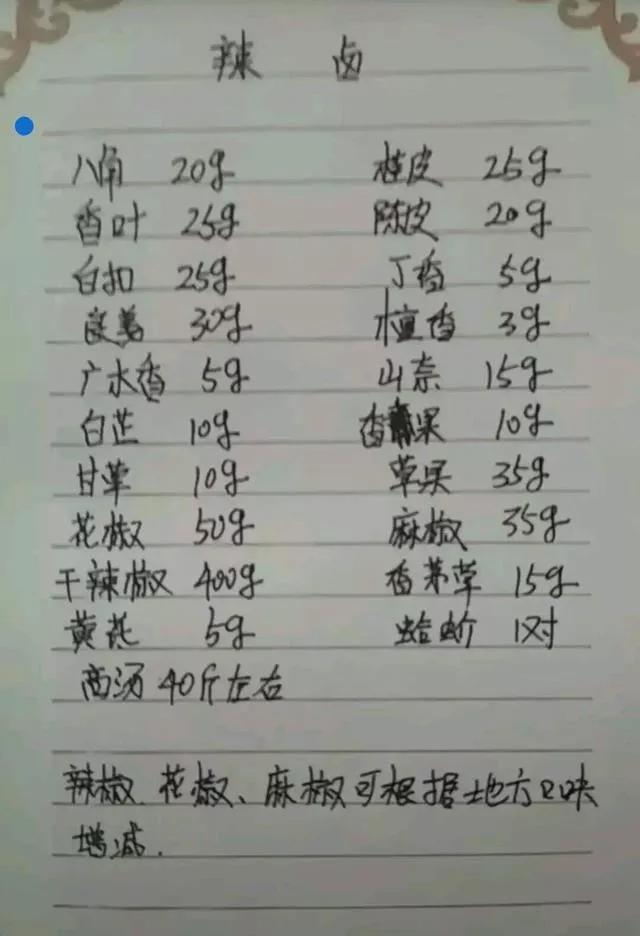 辣 卤
八角 20g 桂皮 25g
香叶 25g 陈皮 20g
白扣 25g 丁香 5g
良姜 30g 檀香 3g
广木香 5g 山奈 15g
白芷 10g 香果 10g
甘草 10g 草果 35g
花椒 50g 麻椒 35g
干辣椒 400g 香茅草 15g
黄芪 5g 蛤蚧 1对
高汤 40斤左右
辣椒、花椒、麻椒可根据地方口味
增减.